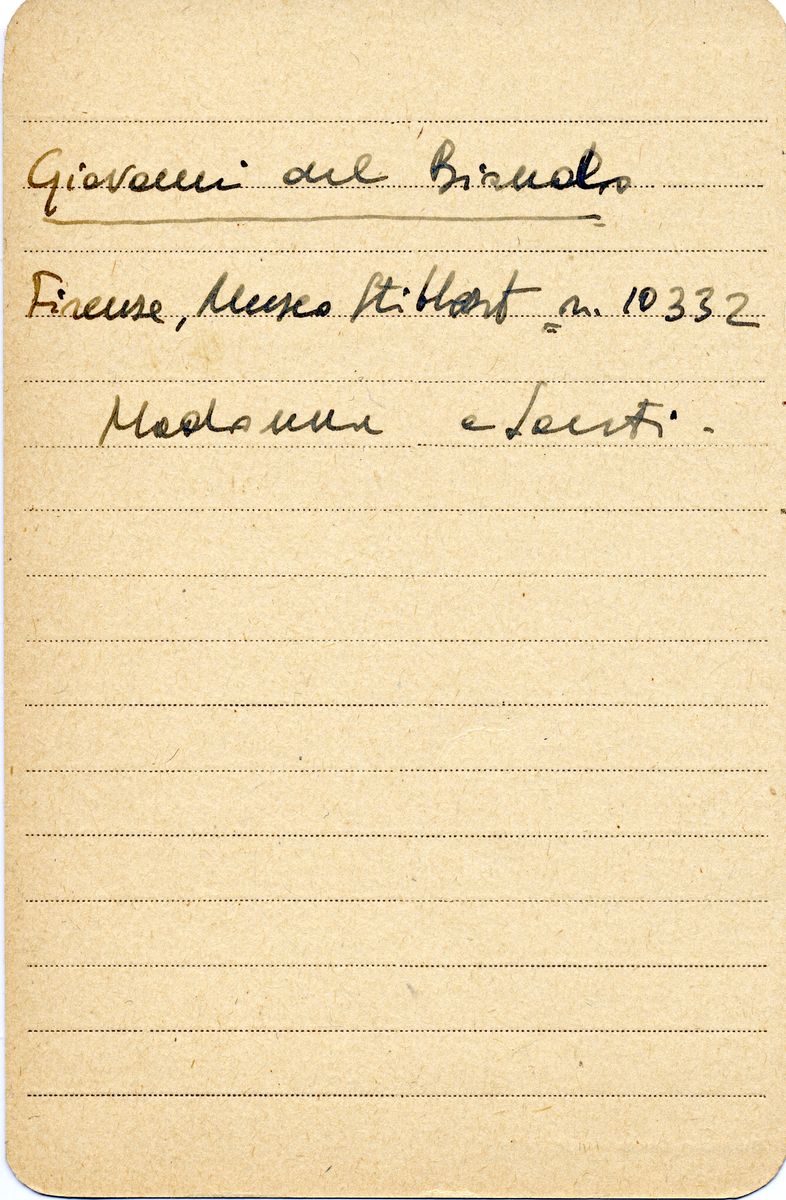 Giovanni del Biondo
Firenze, Museo Stibbert n. 10332
Madonna e Santi.